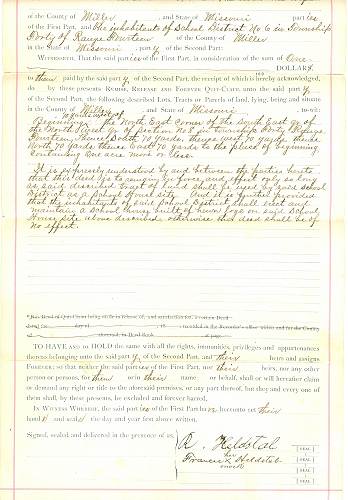 of the County of Miller , and State of Missouri part ies
of the First Part, and the inhabitants of School District No 6 in Township
Forty of Range Fourteen of the County of Miller
in the State of Missouri , part y of the Second Part:
WITNESSETH, That the said part ies of the First Part, in consideration of the sum of One
DOLLARS
to them paid by the said part y of the Second Part, the receipt of which is hereby acknowledged,
do by these presents REMISE, RELEASE AND FOREVER QUIT-CLAIM, unto the said part y
of the Second Part, the following described Lots, Tracts or Parcels of land, lying, being and situate
in the County of Miller and State of Missouri , to-wit:
Beginning at the North East Corner of the South East qr of
the North West qr of Section No 8 in Township Forty of Range
Fourteen, thence South 70 yards, thence west 70 yards, thence
North 70 yards, thence East 70 yards to the place of beginning
containing one acre more or less.
It is expressly understood by and between the parties hereto
that this deed is to remain in force and effect only so long
as said described tract of land shall be used by said School
District as a School House site. And it is further provided
that the inhabitants of said School District shall erect and
maintain a School house built of hewn logs on said School
House site above described otherwise this deed shall be of
no effect.
TO HAVE AND TO HOLD the same with all the rights, immunities, privileges and appurtenances
thereto belonging unto the said part y of the Second Part, and their heirs and assigns
FOREVER; so that neither the said part ies of the First Part, nor their heirs, nor any other
person or persons, for them or in their name or behalf, shall or will hereafter claim
or demand any right or title to the aforesaid premises, or any part thereof, but they and every one of them
shall, by these presents, be excluded and forever barred.
IN WITNESS WHEREOF, the said part ies of the First Part ha ve hereunto set their
hand s and seal s the day and year first above written.
Signed, sealed and delivered in the presence of us,
R. Hildstal [SEAL]
her
Frances X Hildstal [SEAL]
mark
[SEAL]
[SEAL]